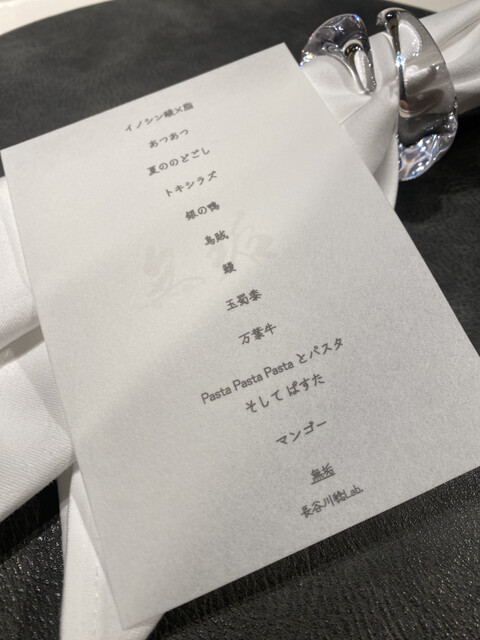 イノシン酸×脂
あつあつ
夏ののどごし
トキシラズ
銀の鴨
烏賊
鰻
玉蜀黍
万葉牛
Pasta Pasta Pasta とパスタ
そして ぱすた
マンゴー
無垢
長谷川稔Lab.